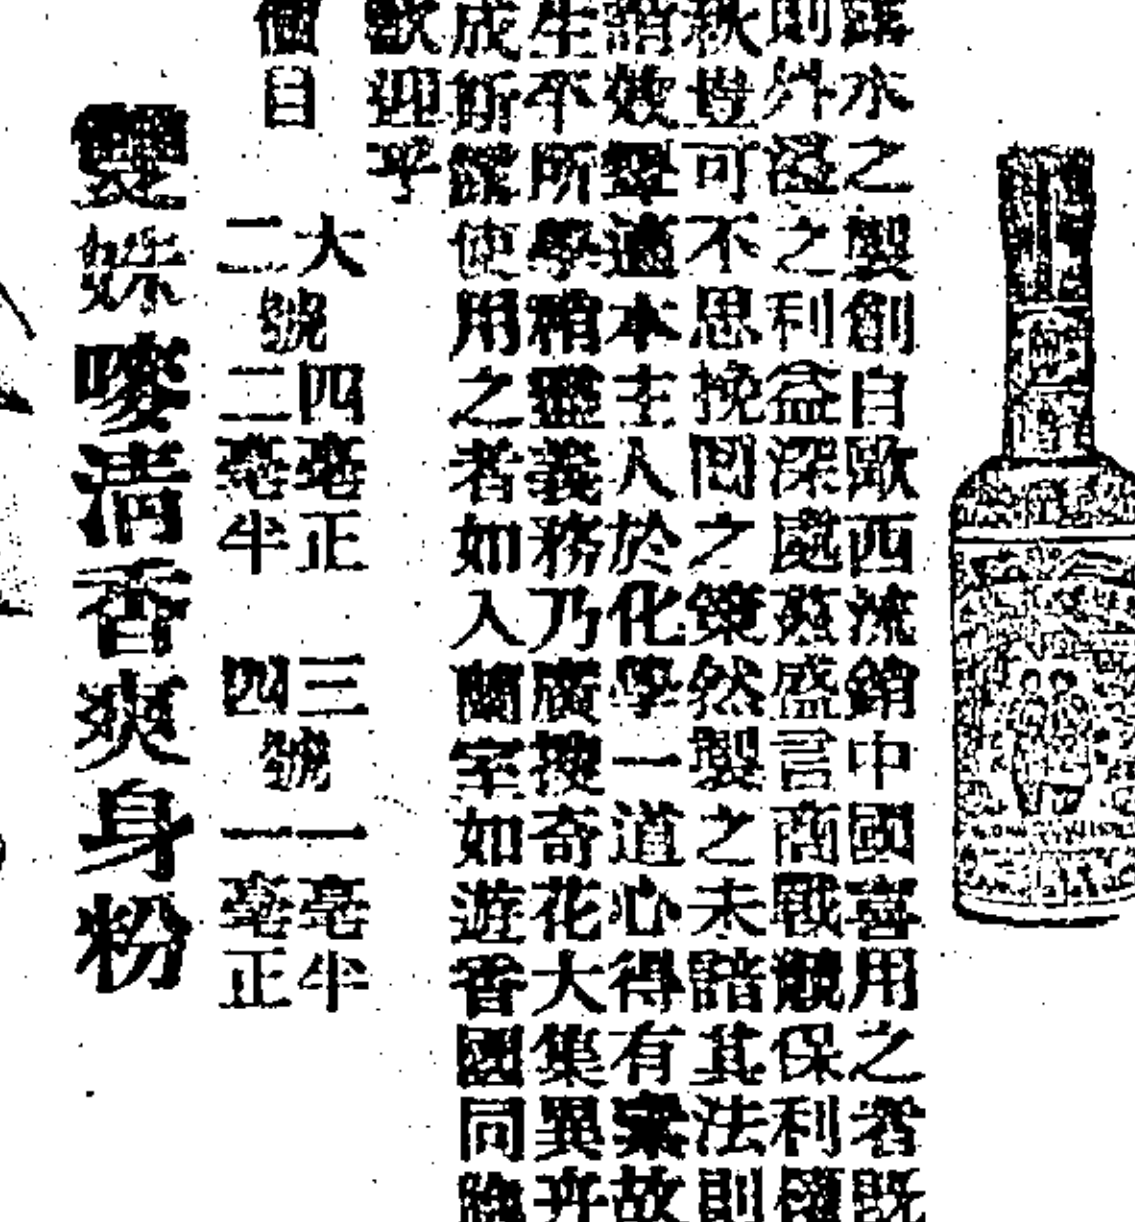 露水之製創自歐西流銷中國喜用之者既
則外溢之利益深處茲盛言商戰競保利權
秋豈可不思挽囘之策然製之未諳其法則
諧效顰適本主人於化學一道心得有素故
生平所學稍靈義務乃廣搜奇花大集異卉
成斯露使用之者如入蘭室如遊香國同臨
歡迎乎
價目
大號四毫正 三號一毫半
二號二毫半 四號一毫正
雙妹嘜清香爽身粉